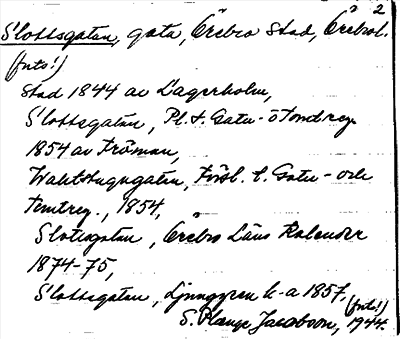 2
Slottsgatan, gata, Örebro stad, Örebrol.
(fints!)
Stad 1844 av Lagerholm,
Slottsgatan, Pl. t. Gatu- o Tomtreg.
1854 av Fröman,
Försl. t. Gatu- och
Tomtreg., 1854,
Slottsgatan, Örebro Läns Kalender
1874-75,
Slottsgatan, Ljunggren k-a 1857,
S. Jacobson, 1944.